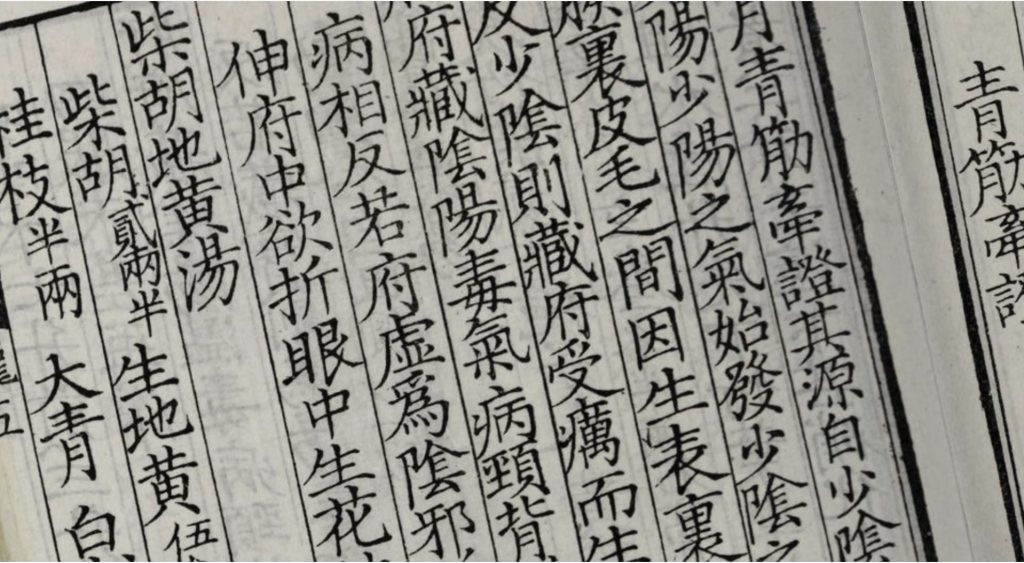 青筋牽證
月青筋牽證其源自少陰
陽少陽之氣始發少陰之
裏皮毛之間因生表裏
反少陰則藏府受癘而生
府藏陰陽毒氣病頸背
病相反若府虛爲陰邪
伸府中欲折眼中生花
柴胡地黄湯
柴胡貳兩半 生地黄伍
桂枝半兩 大青 白
五